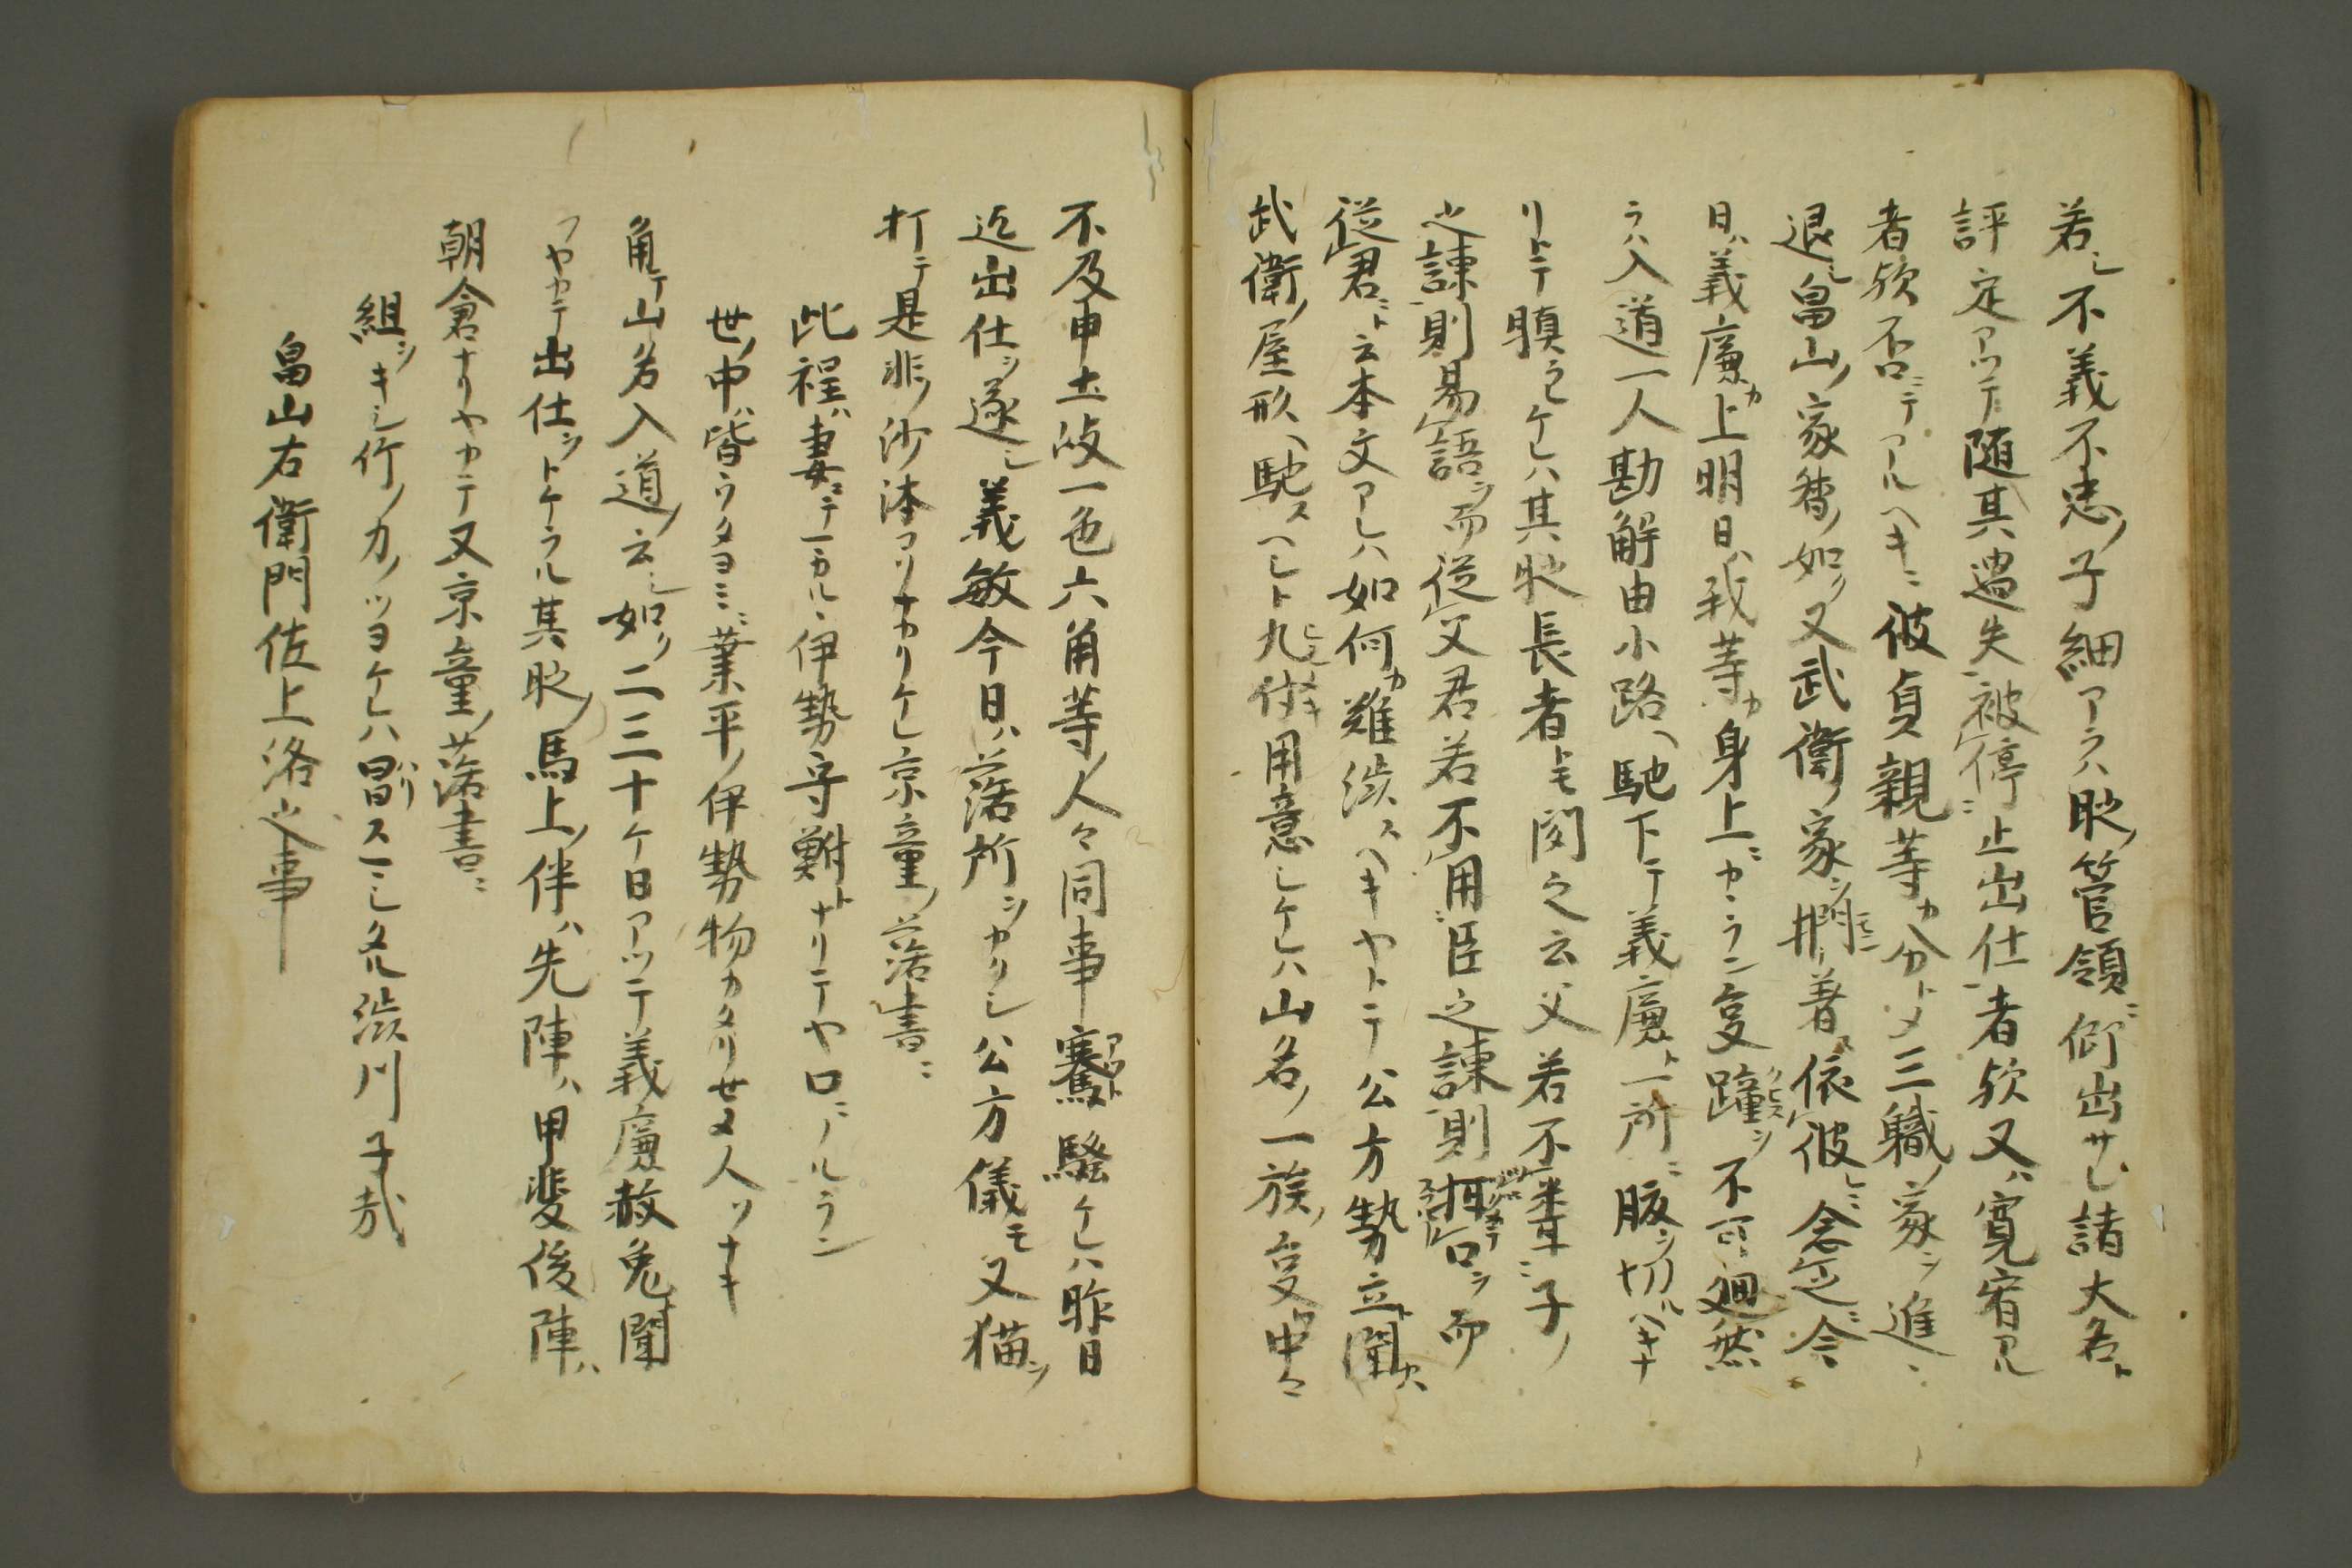 若シ不義不忠ノ子細アラハ时ノ管領ニ仰出サレ諸大名ト
評定アツテ随其過失被停止出仕者欤又ハ寛宥アル
者欤否ニテアルヘキニ彼貞親等カ分トメ三職ノ家ヲ進ミ
退シ畠山ノ家督ノ如ク又武衛ノ家ヲ者依彼ニ念ニ今
日ハ義廉カ上明日ハ我等カ身上ニカヽラン夏踵ヲ不可廻然
ラハ入道一人勘解由小路ヘ馳下テ義廉ト一所ニ腹ヲ切ヘキナ
リトテ瞋ラレケレハ其时長者トモ聞之云父若不用子ノ
之諫則易語ヲ而従父君若不用臣之諫則ヲ而
従君ニト云本文アレハ如何カ難渋スヘキヤトテ公方勢立ト聞ヘハ
武衛ノ屋形ヘ馳スヘシト九伐用意シケレハ山名ノ一族ノ夏ハ中々
不及申土岐一色六角等ノ人々同事騫騒ケレハ昨日
迄出仕ヲ遂シ義敏今日ハ落所ヲカクシ公方儀モ又猫ヲ
打テ是非ノ沙汰マリナカリケレ京童ノ落書ニ
此程ハ妻ニテ一カルヽ伊勢守難トナリテヤ口ニノルラン
世ノ中ハ皆ウタヨミニ業平ノ伊勢物カタリせヌ人ソナキ
角テ山名入道ノ云シ如ク二三十ケ日アツテ義廉赦免聞
フヤカテ出仕ヲトケラル其时ノ馬上ノ伴ハ先陣ハ甲斐後陣ハ
朝倉ナリヤカテ又京童ノ落書ニ
組ヲキシ竹ノカノツヨケレハ昌スニシ久ル渋川子哉
畠山右衛門佐上洛之事